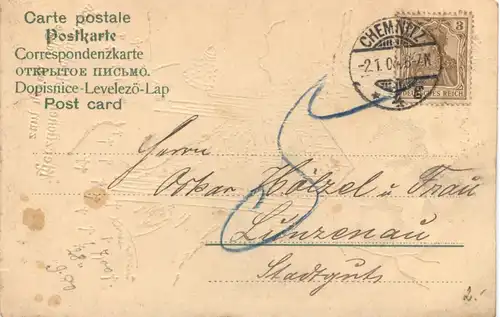 Carte postale
Postkarte
Correspondenzkarte
ОТКРЫТОЕ ПИСЬМО.
Dopisnice-Levelező-Lap
Post card
CHEMNITZ
-2.1.0
6-7.N.
3
DEUTSCHES REICH
Herrn
Oskar Hölzel u Frau
Lunzenau
Stadtguts
2.-